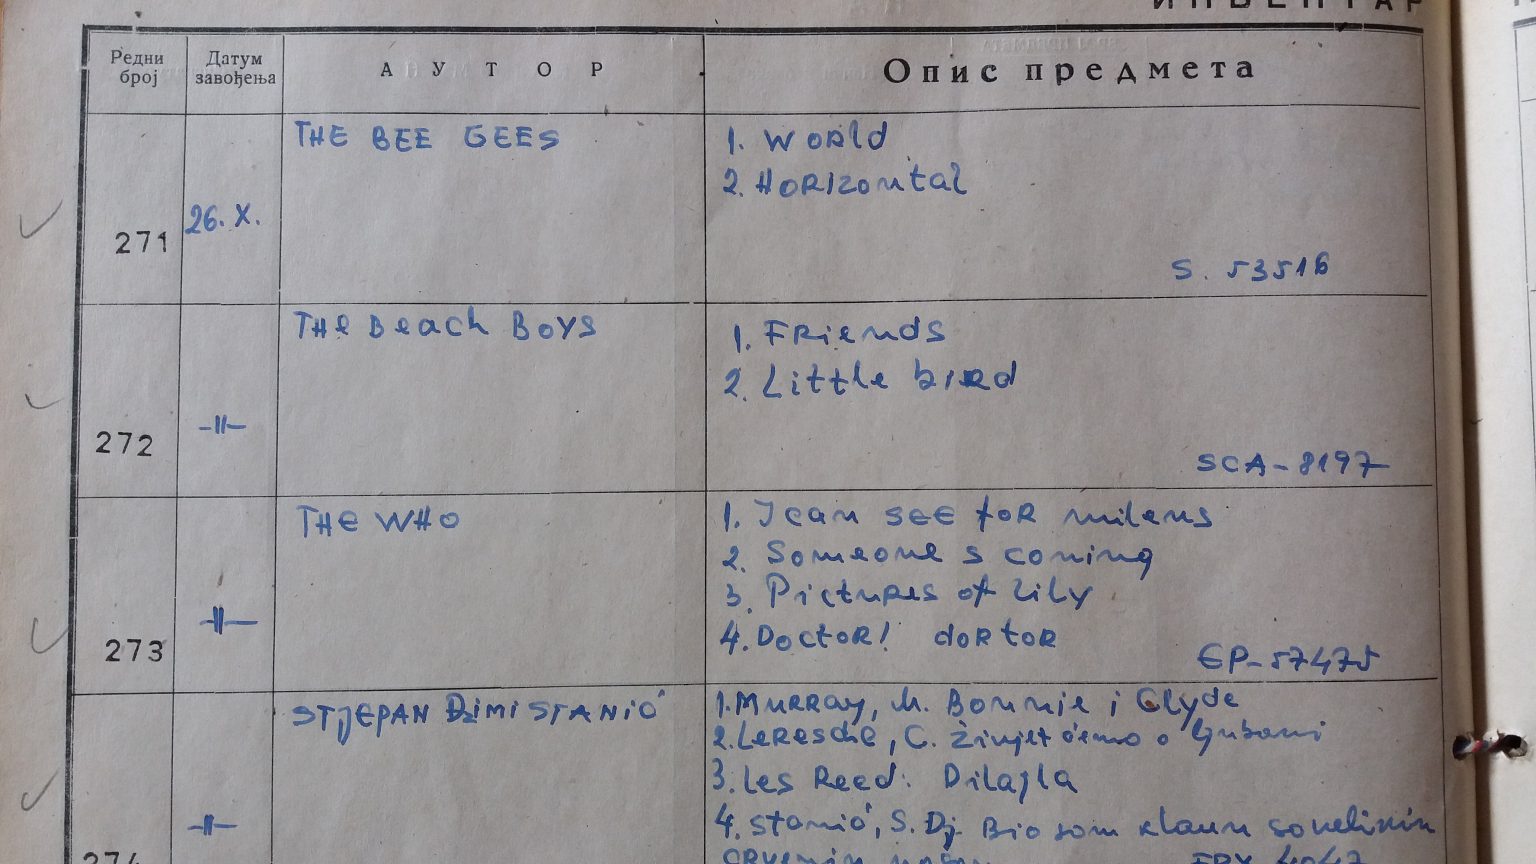 ИНВЕНТАР
Редни број
Датум завођења
АУТОР
Опис предмета
271
26. X.
THE BEE GEES
1. World
2. Horizontal
S. 53516
272
-||-
The Beach Boys
1. Friends
2. Little bird
SCA-8197
273
-||-
THE WHO
1. I can see for milens
2. Someone s coming
3. Pictures of lily
4. Doctor! dortor
EP-57475
274
-||-
STJEPAN DžIMI STANIĆ
1. Murray, M. Bonnie i Clyde
2. Leresche, C. Živjet ćemo o ljubavi
3. Les Reed: Dilajla
4. Stanić, S. Dj. Bio sam klaun sa velikim
crvenim nosom
EPY 4047